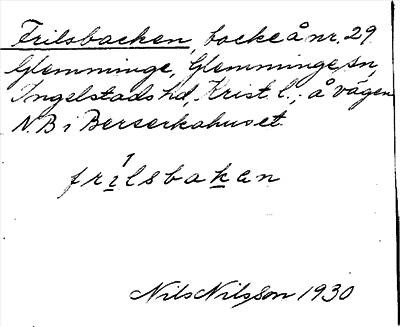 Frilsbacken, backe å nr. 29
Glemminge, Glemminge sn,
Ingelstads hd, Krist. l.; å vägen
N.B i Berserkahuset.
frilsbakan
Nils Nilsson 1930